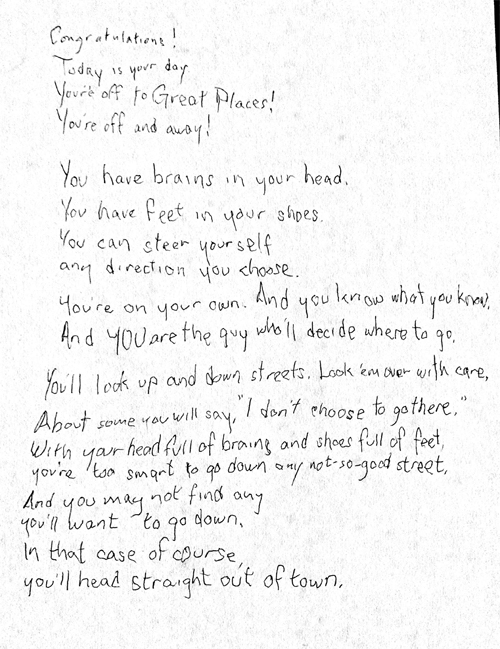 Congratulations!
Today is your day
You're off to Great Places!
You're off and away!
You have brains in your head.
You have feet in your shoes.
You can steer yourself
any direction you choose.
You're on your own. And you know what you know.
And YOU are the guy who'll decide where to go.
You'll look up and down streets. Look 'em over with care,
About some you will say, "I don't choose to go there."
With your head full of brains and shoes full of feet,
you're too smart to go down any not-so-good street.
And you may not find any
you'll want to go down.
In that case of course,
you'll head straight out of town.